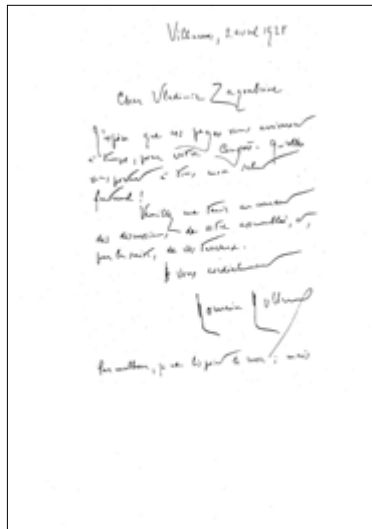 Villeneuve, 2 avril 1928
Cher Vladimir
J'espère que ces pages vous arriveront
à temps, pour votre Congrès. Qu'elles
vous portent à tous mon salut
fraternel !
Veuillez me tenir au courant
des discussions de votre assemblée, et,
par la suite, de vos travaux.
à vous cordialement
Romain Rolland
Par malheur, je ne lis pas le russe ; mais